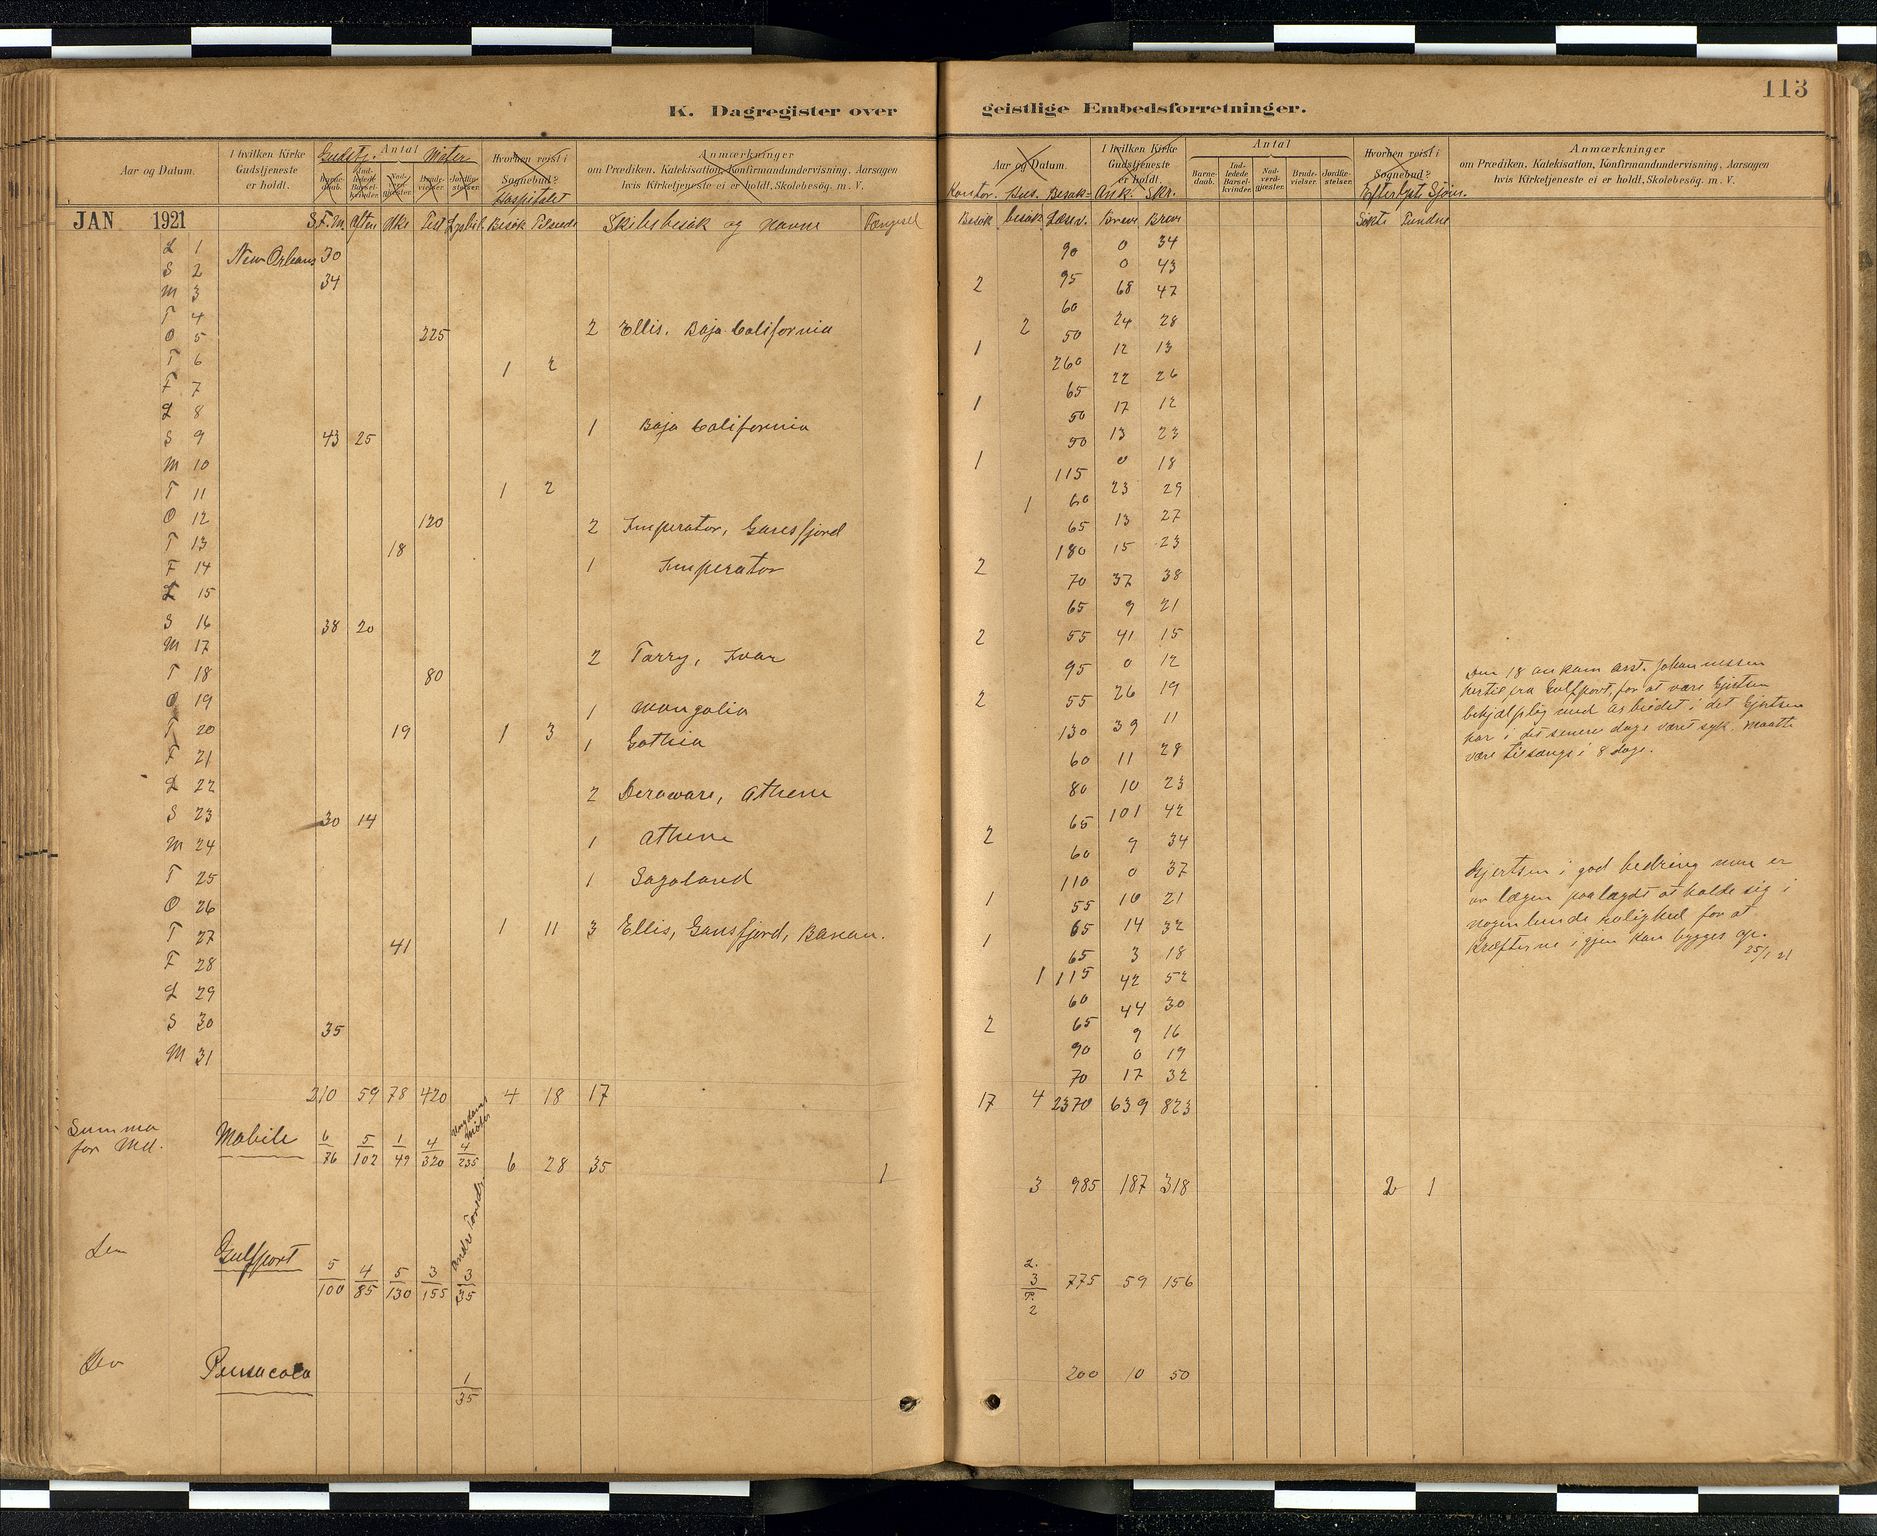 K. Dagregister over
geistlige Embedsforretninger.
113
Aar og Datum. I hvilken Kirke Gudstjeneste er holdt. Gudstj. Antal Møter Hvorhen reist i Sognebud? Hospitalet Anmærkninger om Prædiken, Katekisation, Konfirmandundervisning, Aarsagen hvis Kirketjeneste ei er holdt, Skolebesøg. m. V.
JAN 1921 F.M. Aften Uke Fest Besøk Tilstede Skibsbesøk og Navne Fængsel
L 1 New Orleans 30
S 2 34
M 3
T 4
O 5 225 2 Ellis, Baja California
T 6 1 2
F 7
L 8
S 9 43 25 1 Baja California
M 10
T 11 1 2
O 12 120 2 Imperator, Gansfjord
T 13 18
F 14 1 Imperator
L 15
S 16 38 20
M 17
T 18 80 2 Torry, Ivar
O 19 1 Mongolia
T 20 19 1 3
F 21 1 Gothia
L 22 2 Athene
S 23 30 14
M 24 1 Athene
T 25 1 Sagaland
O 26
T 27 41 1 11 3 Ellis, Gansfjord, Banan.
F 28
L 29
S 30 35
M 31
210 59 78 420 4 18 17
Summa for Md. Mobile 6/76 5/102 1/49 4/320 Ungdoms Møter 4/235 6 28 35 1
Gulfport 5/100 4/85 5/130 3/155 3/35
Pensacola 1/35
Aar og Datum. I hvilken Kirke Gudstjeneste er holdt. Antal Hvorhen reist i Sognebud? Anmærkninger
Barnedaab. Indledede Barselkvinder. Nadverdgjester. Brudevielser. Jordfæstelser. om Prædiken, Katekisation, Konfirmandundervisning, Aarsagen hvis Kirketjeneste ei er holdt, Skolebesøg. m. V.
Kontor. Hus. Besøk= Ank. Skr. Efterlyst Sjøm.
Besøk besøk Læsev. Breve Breve Søkte Fundne
90 0 34
95 0 43
2 60 68 47
2 50 24 28
1 260 12 13
65 22 26
1 50 17 12
50 13 23
1 115 0 18
1 60 23 29
65 13 27
180 15 23
2 70 37 38
65 9 21
2 55 41 15
95 0 12
2 55 26 19
130 39 11
60 11 28
80 10 23
65 101 42
2 60 9 34
110 0 37
1 55 10 21
65 14 32
1 65 3 18
1 115 42 52
60 44 30
2 65 9 16
90 0 19
70 17 32
17 4 2370 639 823
3 985 187 318 2 1
L. 3 / P. 2 775 59 156
200 10 50
Den 18 ankom asst. Johannessen
hertil fra Gulfport, for at være Gjertsen
behjælplig med arbeidet i det Gjertsen
har i det senere dage været syk. Maatte
være tilsengs i 8 dage.
Gjertsen i god bedring men er
av lægen paalagdt at holde sig i
nogenlunde rolighed for at
Kræfterne igjen kan bygges op.
25/1 21